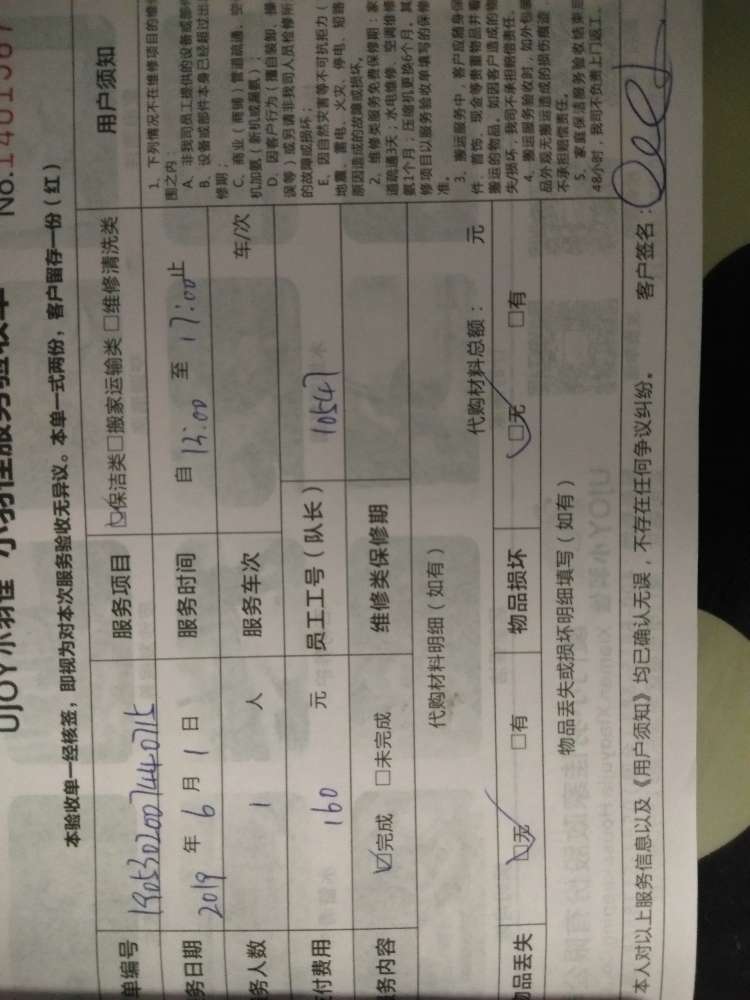 UJOY小羽佳服务验收单 No.1401567
本验收单一经核签，即视为对本次服务验收无异议。本单一式两份，客户留存一份（红）
单编号 1905302007440715 服务项目 ☑保洁类□搬家运输类 □维修清洗类 用户须知
务日期 2019 年 6 月 1 日 服务时间 自 13:00 至 17:00 止
务人数 1 人 服务车次 车/次
付费用 160 元 员工工号（队长） 10547
务内容 ☑完成 □未完成 维修类保修期
代购材料明细（如有） 代购材料总额： 元
品丢失 ☑无 □有 物品损坏 ☑无 □有
物品丢失或损坏明细填写（如有）
1、下列情况不在维修项目的维
围之内：
A、非我司员工提供的设备或部件
B、设备或部件本身已经超过出
修期；
C、商业（商铺）管道疏通、空
机加氨（新机或漏氨）；
D、因客户行为（擅自装卸、操
误等）或另请非我司人员检修所
的故障或损坏；
E、因自然灾害等不可抗拒力（
地震、雷电、火灾、停电、短路
原因造成的故障或损坏。
2、维修类服务免费保修期：家
道疏通3天；水电维修、空调维修
氨1个月；压缩机更换6个月。其
修项目以服务验收单填写的保修
准。
3、搬运服务中，客户应随身保
件、首饰、现金等贵重物品并看
搬运的物品。如因客户造成的物
失/损坏，我司不承担赔偿责任。
4、搬运服务验收时，如外包装
品外观无搬运造成的损伤痕迹，
不承担赔偿责任。
5、家庭保洁服务验收结束后
48小时，我司不负责上门返工。
本人对以上服务信息以及《用户须知》均已确认无误，不存在任何争议纠纷。 客户签名：